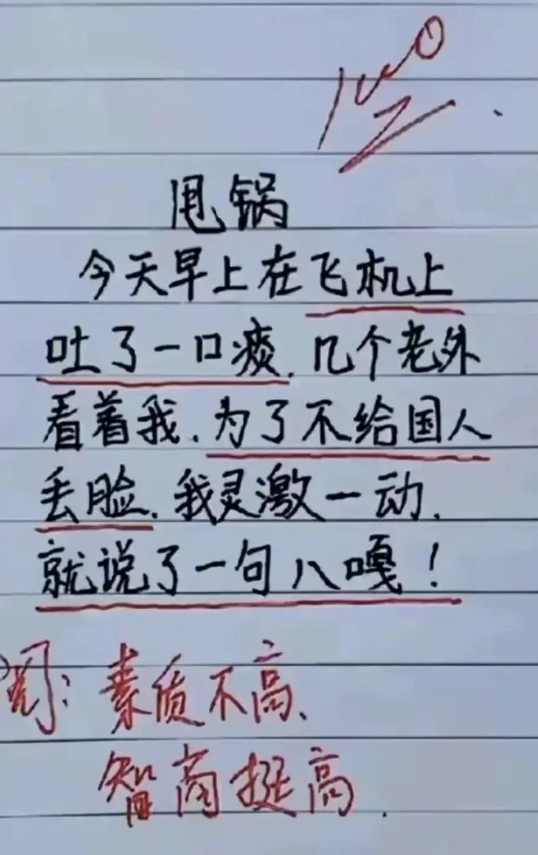 100
甩锅
今天早上在飞机上
吐了一口痰.几个老外
看着我.为了不给国人
丢脸.我灵激一动.
就说了一句八嘎！
阅：素质不高、
智商挺高.